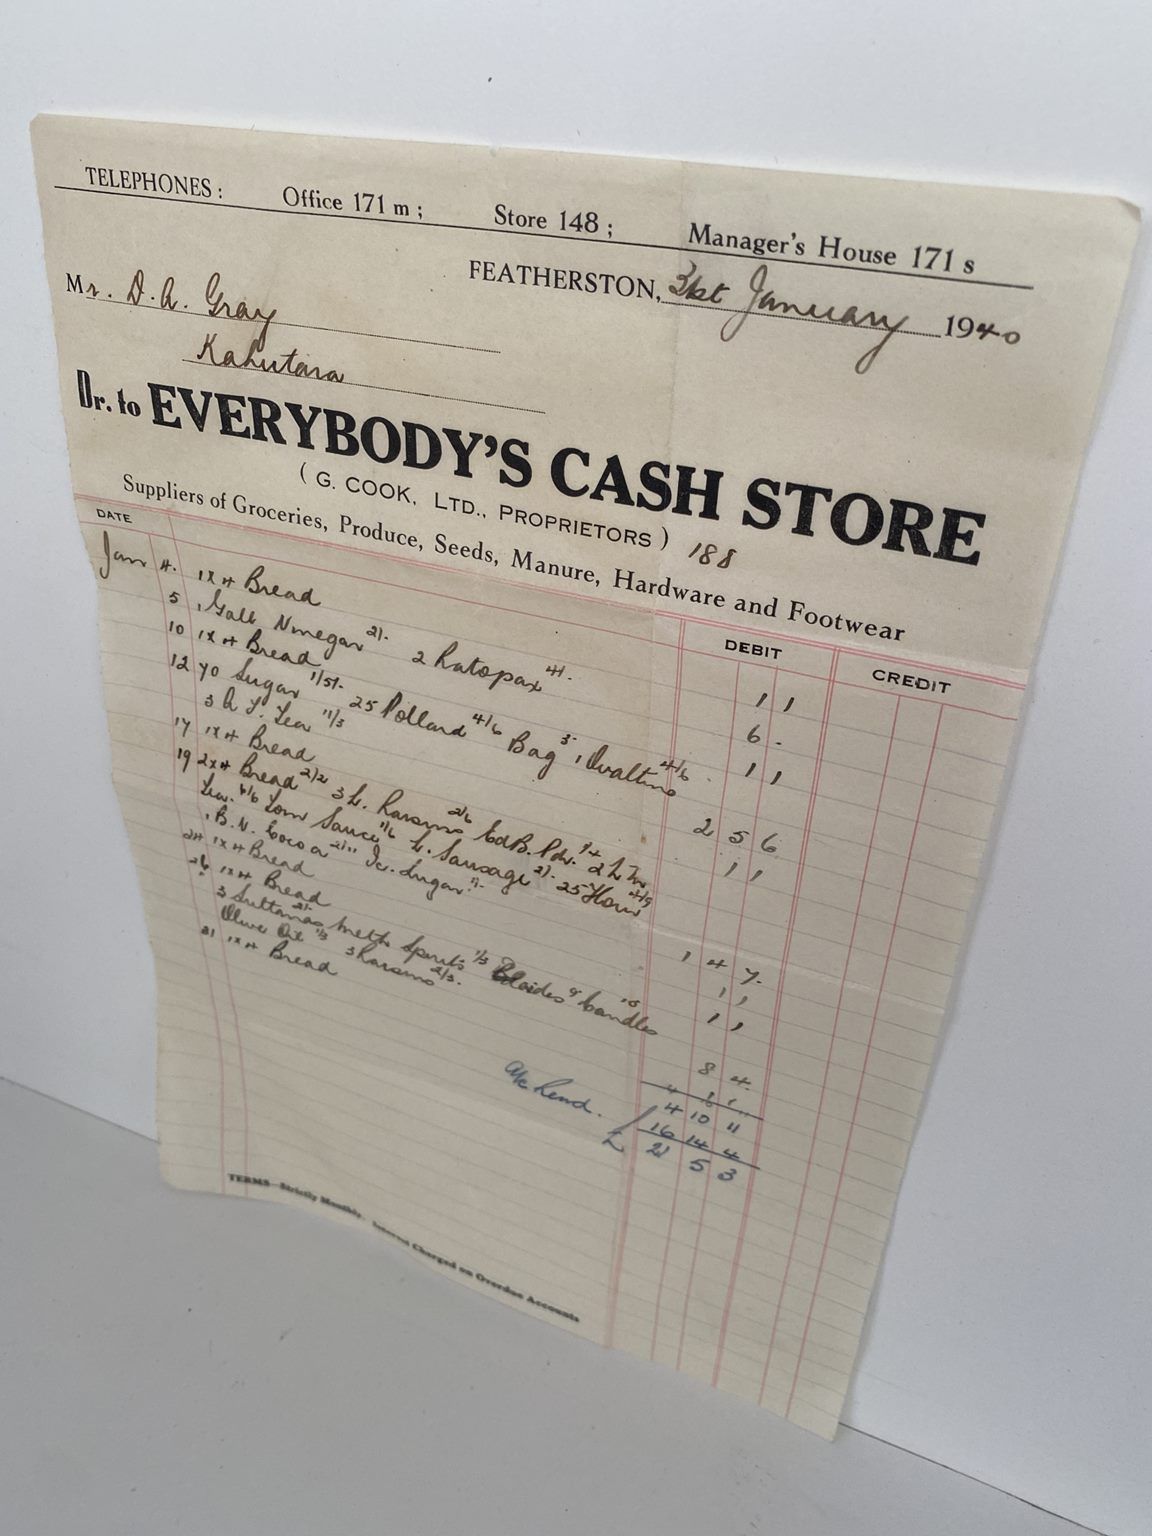 TELEPHONES: Office 171 m; Store 148; Manager's House 171 s
FEATHERSTON, 31st January 1940
Mr. D. A. Gray
Kahutara
Dr. to EVERYBODY'S CASH STORE
(G. COOK, LTD., PROPRIETORS) 188
Suppliers of Groceries, Produce, Seeds, Manure, Hardware and Footwear
DATE DEBIT CREDIT
Jan 4. 1x4 Bread 1 1
5 1 Gall Vinegar 2/- 2 Ratopax 4/- 6 -
10 1x4 Bread 1 1
12 70 Sugar 25 Pollard 4/6 Bag 5 1 Ovaltine 4/6
3 Tea 11/3 2 5 6
17 1x4 Bread 1 1
19 2x4 Bread 2/2 3 Raisins 2/6 Ed B. Pdr.
Tea. 6/6 Tom Sauce 1/6 Sausage 2/- 25 Flour 4/9
1 B.V. Cocoa 2/11 Ic. Sugar 1 4 7
24 1x4 Bread 1 1
26 1x4 Bread 1 1
3 Sultanas 2/- Meth Spirits 1/3 Candles
Olive Oil 1/3 3 Raisins 2/3. 8 4
31 1x4 Bread 1 1
4 10 11
A/c Rend. 16 14 4
£ 21 5 3
TERMS—Strictly Monthly. Interest Charged on Overdue Accounts